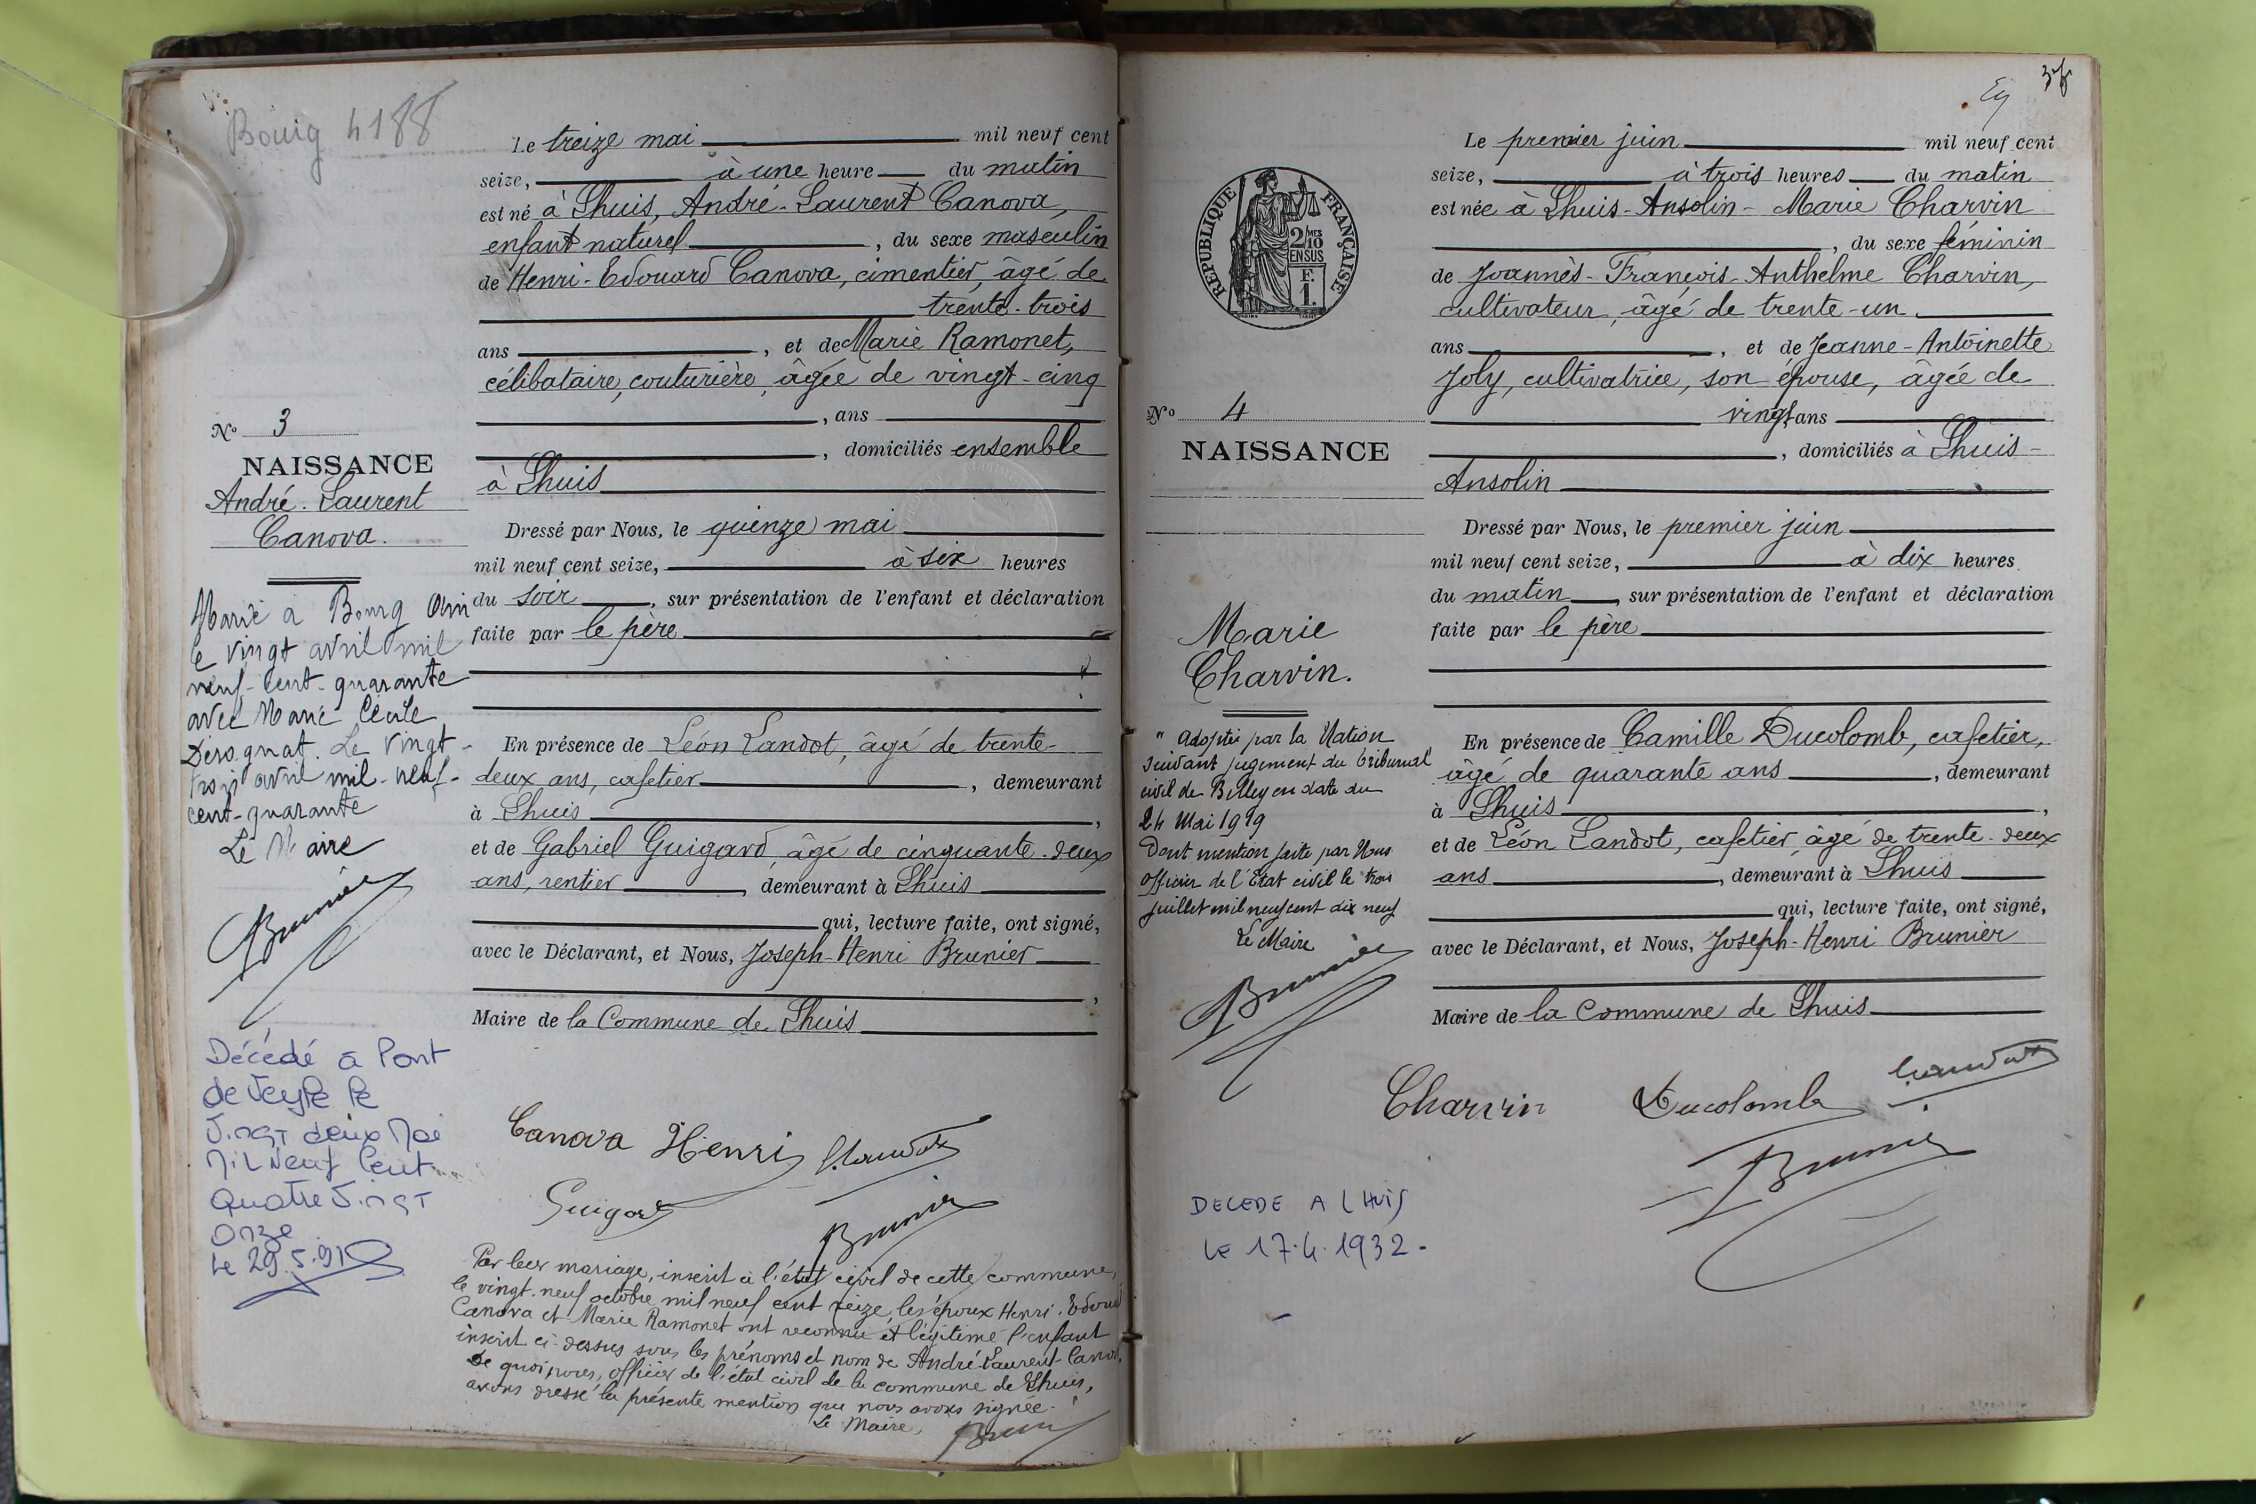 Bourg 4188
Le treize mai mil neuf cent
seize, à une heure du matin
est né à Lhuis, André-Laurent Canova,
enfant naturel, du sexe masculin
de Henri-Edouard Canova, cimentier, âgé de
trente-trois
ans, et de Marie Ramonet,
célibataire, couturière, âgée de vingt-cinq
, ans
, domiciliés ensemble
à Lhuis
Dressé par Nous, le quinze mai
mil neuf cent seize, à six heures
du soir, sur présentation de l'enfant et déclaration
faite par le père
En présence de Léon Landot, âgé de trente-
deux ans, cafetier, demeurant
à Lhuis,
et de Gabriel Guigard, âgé de cinquante-deux
ans, rentier, demeurant à Lhuis
qui, lecture faite, ont signé,
avec le Déclarant, et Nous, Joseph-Henri Brunier
,
Maire de la Commune de Lhuis
Canova Henri Landot
Guigard
Brunier
Par leur mariage, inscrit à l'état civil de cette commune,
le vingt-neuf octobre mil neuf cent seize, les époux Henri-Edouard
Canova et Marie Ramonet ont reconnu et légitimé l'enfant
inscrit ci-dessus sous les prénoms et nom de André-Laurent Canova,
De quoi, nous, officier de l'état civil de la commune de Lhuis,
avons dressé la présente mention que nous avons signée.
Le Maire,
Brunier
No 3
NAISSANCE
André-Laurent
Canova.
Marié à Bourg Ain
le vingt avril mil
neuf-cent-quarante
avec Marie Cécile
Désognat. Le vingt-
trois avril mil-neuf-
cent-quarante
Le Maire
Brunier
Décédé a Pont
de Veyle le
Vingt deux Mai
Mil Neuf Cent
Quatre Vingt
Onze
Le 29.5.91
37
Le premier juin mil neuf cent
seize, à trois heures du matin
est née à Lhuis-Ansolin-Marie Charvin
, du sexe féminin
de Joannès-François-Anthelme Charvin,
cultivateur, âgé de trente-un
ans, et de Jeanne-Antoinette
Joly, cultivatrice, son épouse, âgée de
vingt ans
, domiciliés à Lhuis-
Ansolin
Dressé par Nous, le premier juin
mil neuf cent seize, à dix heures
du matin, sur présentation de l'enfant et déclaration
faite par le père
En présence de Camille Ducolomb, cafetier,
âgé de quarante ans, demeurant
à Lhuis,
et de Léon Landot, cafetier, âgé de trente-deux
ans, demeurant à Lhuis
qui, lecture faite, ont signé,
avec le Déclarant, et Nous, Joseph-Henri Brunier
Maire de la Commune de Lhuis
Charvin Ducolomb Landot
Brunier
RÉPUBLIQUE FRANÇAISE
2/10 MES
EN SUS
F.
1.
No 4
NAISSANCE
Marie
Charvin.
" Adoptée par la Nation
suivant jugement du tribunal
civil de Belley en date du
24 Mai 1919
Dont mention faite par Nous
officier de l'Etat civil le trois
juillet mil neuf cent dix neuf
Le Maire
Brunier
DECEDE A LHUIS
LE 17.4.1932.